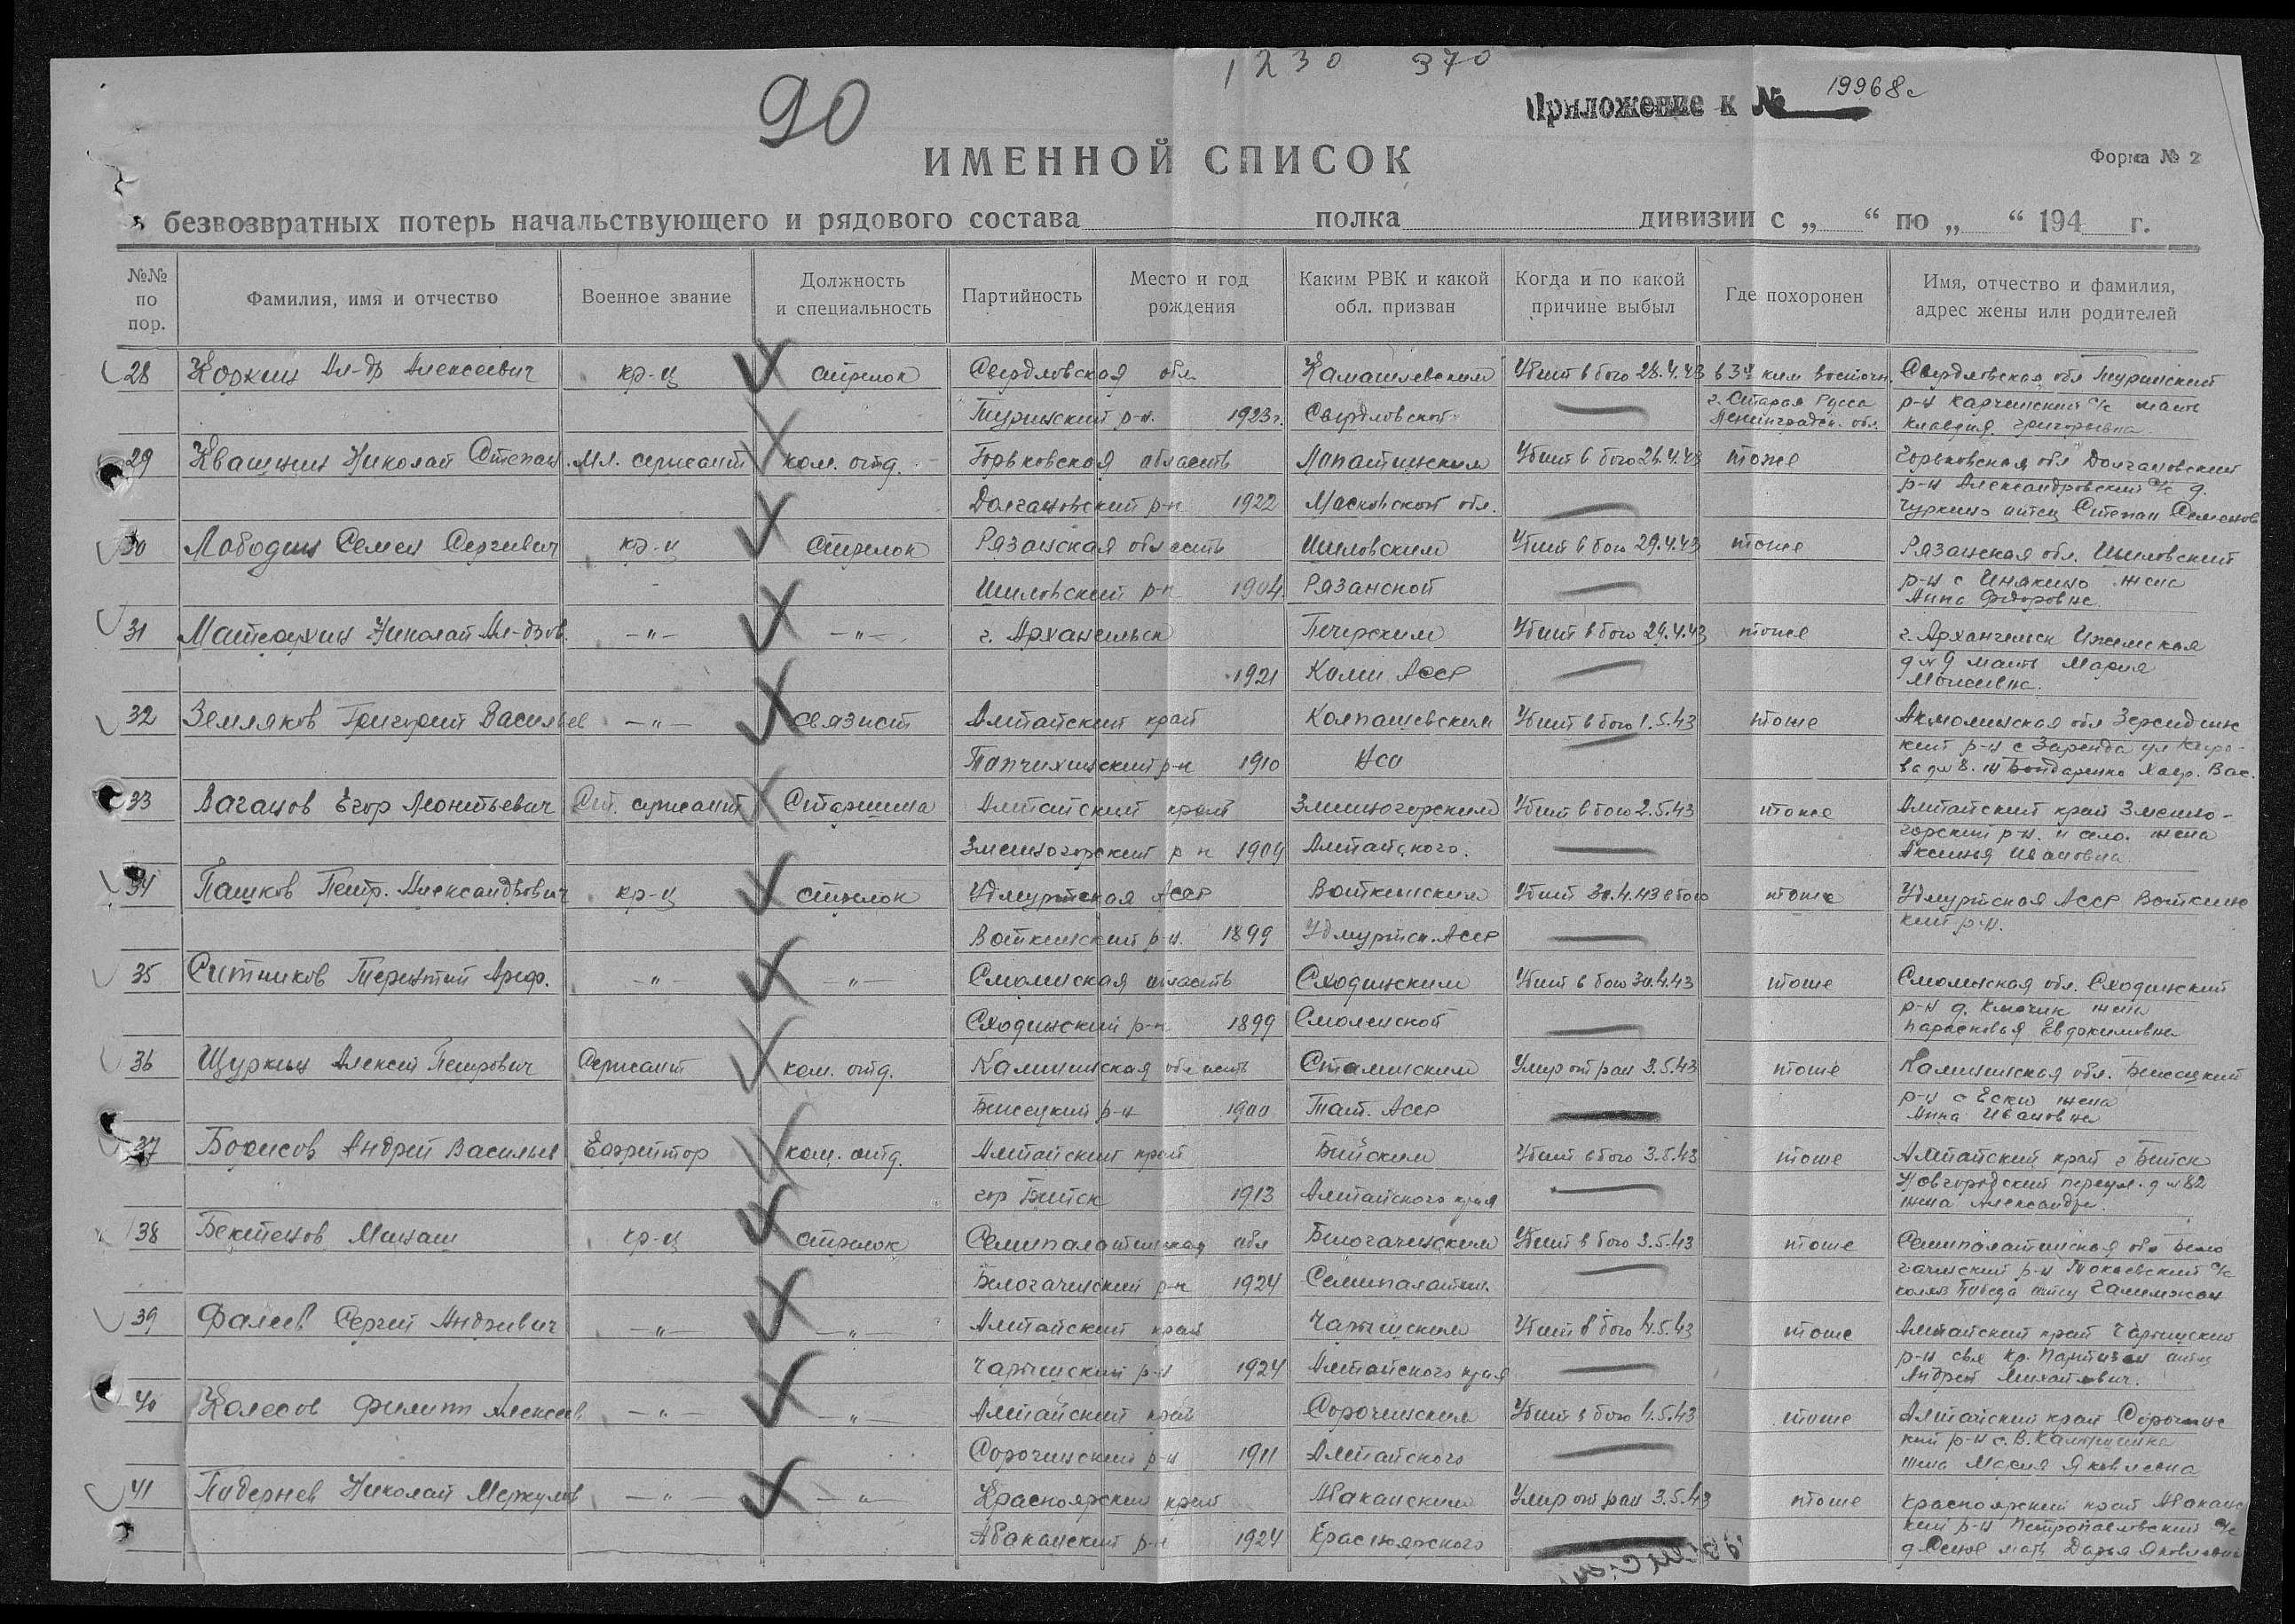 1230 370
90
Приложение к № 19968с
ИМЕННОЙ СПИСОК
Форма № 2
безвозвратных потерь начальствующего и рядового состава полка дивизии с „ “ по „ “ 194 г.
№№ по пор. Фамилия, имя и отчество Военное звание Должность и специальность Партийность Место и год рождения Каким РВК и какой обл. призван Когда и по какой причине выбыл Где похоронен Имя, отчество и фамилия, адрес жены или родителей
28 Коркин Ал-др Алексеевич кр-ц стрелок Свердловская обл. Камашевским Убит в бою 28.4.43 в 34 клм восточн. Свердловская обл Туринский
Туринский р-н. 1923г. Свердловской г. Старая Русса р-н Карчинский с/с мать
Ленинградск. обл. Клавдия Григорьевна
29 Квашнин Николай Степан. Мл. сержант ком. отд. Горьковская область Лопатинским Убит в бою 28.4.43 тоже Горьковская обл Долгановский
р-н Александровский с/с д.
Долгановский р-н 1922 Московской обл. Чуркино отец Степан Семенов
30 Лободин Семен Сергеевич кр-ц стрелок Рязанская область Шиловским Убит в бою 29.4.43 тоже Рязанская обл. Шиловский
Шиловский р-н 1904 Рязанской р-н с Инякино жена
Анна Федоровна
31 Николай Ал-дров. -"- -"- г. Архангельск Печорским Убит в бою 29.4.43 тоже г. Архангельск Ижемская
1921 Коми АССР д № 9 мать Мария
Моисеевна.
32 Земляков Григорий Васильев -"- связист Алтайский край Колпашевским Убит в бою 1.5.43 тоже Акмолинская обл
Топчихинский р-н 1910 Нсо кий р-н с Зеренда ул Киро-
ва д № 8. Бондаренко Вас.
33 Ваганов Егор Леонтьевич Ст. сержант Старшина Алтайский край Змеиногорским Убит в бою 2.5.43 тоже Алтайский край Змеино-
Змеиногорский р-н 1904 Алтайского. горский р-н. село. жена
Аксинья Ивановна
34 Пашков Петр. Александрович кр-ц стрелок Удмуртская АССР Воткинским Убит 30.4.43 в бою тоже Удмуртская АССР Воткинс
Воткинский р-н. 1899 Удмуртск. АССР кий р-н.
35 Ситников Терентий Ареф. -"- -"- Смоленская область Сходинским Убит в бою 30.4.43 тоже Смоленская обл. Сходинский
Сходинский р-н 1899 Смоленской р-н д. Ключик жена
Парасковья Евдокимовна
36 Щуркин Алексей Петрович Сержант ком. отд. Калининская область Сталинским Умер от ран 3.5.43 тоже Калининская обл. Бежецкий
Бежецкий р-н 1900 Тат. АССР р-н с Ески жена
Анна Ивановна
37 Борисов Андрей Васильев Ефрейтор ком. отд. Алтайский край Бийским Убит в бою 3.5.43 тоже Алтайский край г Бийск
гор Бийск 1913 Алтайского края Новгородский переул. д № 82
жена Александр.
38 Бектенов Манаш кр-ц стрелок Семипалатинская обл Белогачинским Убит в бою 3.5.43 тоже Семипалатинская обл Бело
Белогачинский р-н 1924 Семипалатин. гачинский р-н Токаевский с/с
колхоз Победа отец Галимжан
39 Фалеев Сергей Андреевич -"- -"- Алтайский край Чарышским Убит в бою 4.5.43 тоже Алтайский край Чарышский
Чарышский р-н 1924 Алтайского края р-н свх Кр. Партизан отец
Андрей Михайлович.
40 Колесов Филипп Алексеев -"- -"- Алтайский край Сорочинским Убит в бою 4.5.43 тоже Алтайский край Сорочинс
Сорочинский р-н 1911 Алтайского кий р-н с. В.
жена Мария Яковлевна
41 Падернев Николай Меркулов -"- -"- Красноярский край Абаканским Умер от ран 3.5.43 тоже Красноярский край Абаканс
Абаканский р-н 1924 Красноярского кий р-н Петропавловский с/с
д мать Дарья Яковлевна